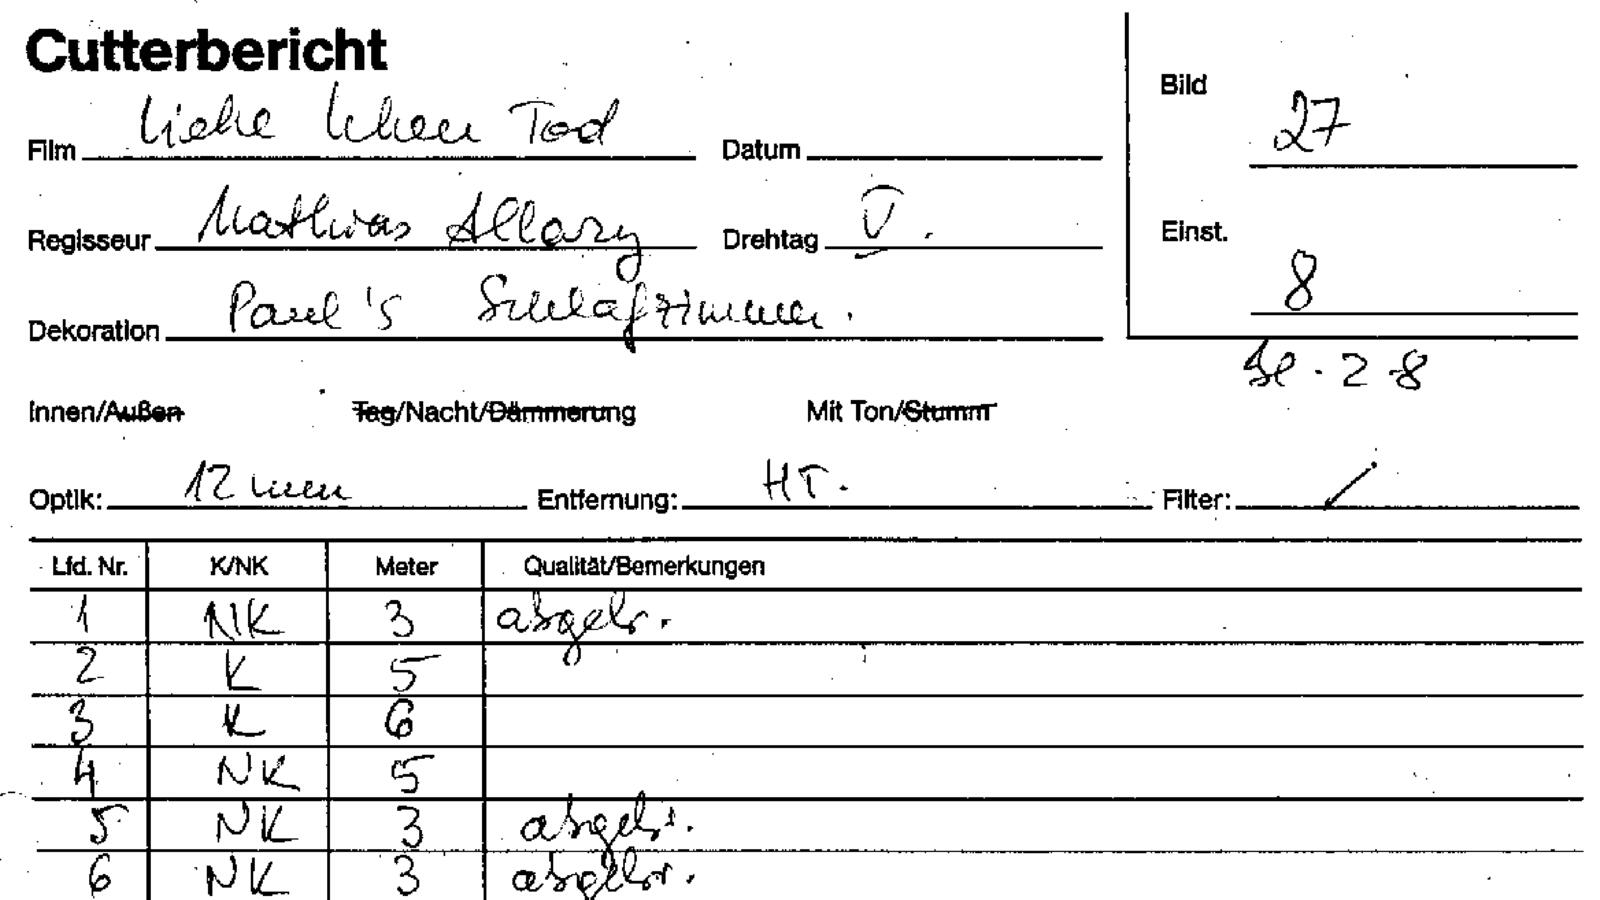 Cutterbericht
Film Liebe Leben Tod Datum
Bild 27
Regisseur Mathias Allary Drehtag V.
Einst. 8
Dekoration Paul's Schlafzimmer.
Bl. 2-8
Innen/Außen Tag/Nacht/Dämmerung Mit Ton/Stumm
Optik: 12 mm Entfernung: HT. Filter: /
Lfd. Nr. K/NK Meter Qualität/Bemerkungen
1 NK 3 abgebr.
2 K 5
3 K 6
4 NK 5
5 NK 3 abgebr.
6 NK 3 abgebr.